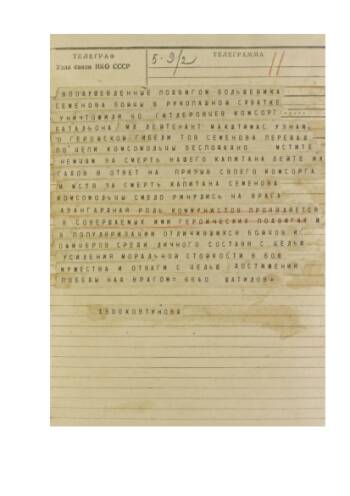 ТЕЛЕГРАФ
Узла связи НКО СССР
5-9/2
ТЕЛЕГРАММА
11
ВООДУШЕВЛЕННЫЕ ПОДВИГОМ БОЛЬШЕВИКА
СЕМЕНОВА БОЙЦЫ В РУКОПАШНОЙ СХВАТКЕ
УНИЧТОЖИЛИ 40 ГИТЛЕРОВЦЕВ КОМСОРГ
БАТАЛЬОНА МЛ ЛЕЙТЕНАНТ УЗНАВ
О ГЕРОЙСКОЙ ГИБЕЛИ ТОВ СЕМЕНОВА ПЕРЕДАЛ
ПО ЦЕПИ КОМСОМОЛЬЦЫ БЕСПОЩАДНО МСТИТЕ
НЕМЦАМ ЗА СМЕРТЬ НАШЕГО КАПИТАНА БЕЙТЕ ИХ
ГАДОВ В ОТВЕТ НА ПРИЗЫВ СВОЕГО КОМСОРГА
И МСТЯ ЗА СМЕРТЬ КАПИТАНА СЕМЕНОВА
КОМСОМОЛЬЦЫ СМЕЛО РИНУЛИСЬ НА ВРАГА
АВАНГАРДНАЯ РОЛЬ КОММУНИСТОВ ПРОЯВЛЯЕТСЯ
В СОВЕРШАЕМЫХ ИМИ ГЕРОИЧЕСКИХ ПОДВИГАХ И
В ПОПУЛЯРИЗАЦИИ ОТЛИЧИВШИХСЯ БОЙЦОВ И
ОФИЦЕРОВ СРЕДИ ЛИЧНОГО СОСТАВА С ЦЕЛЬЮ
УСИЛЕНИЯ МОРАЛЬНОЙ СТОЙКОСТИ В БОЮ
МУЖЕСТВА И ОТВАГИ С ЦЕЛЬЮ ДОСТИЖЕНИЯ
ПОБЕДЫ НАД ВРАГОМ= 6640 ШАТИЛОВ+